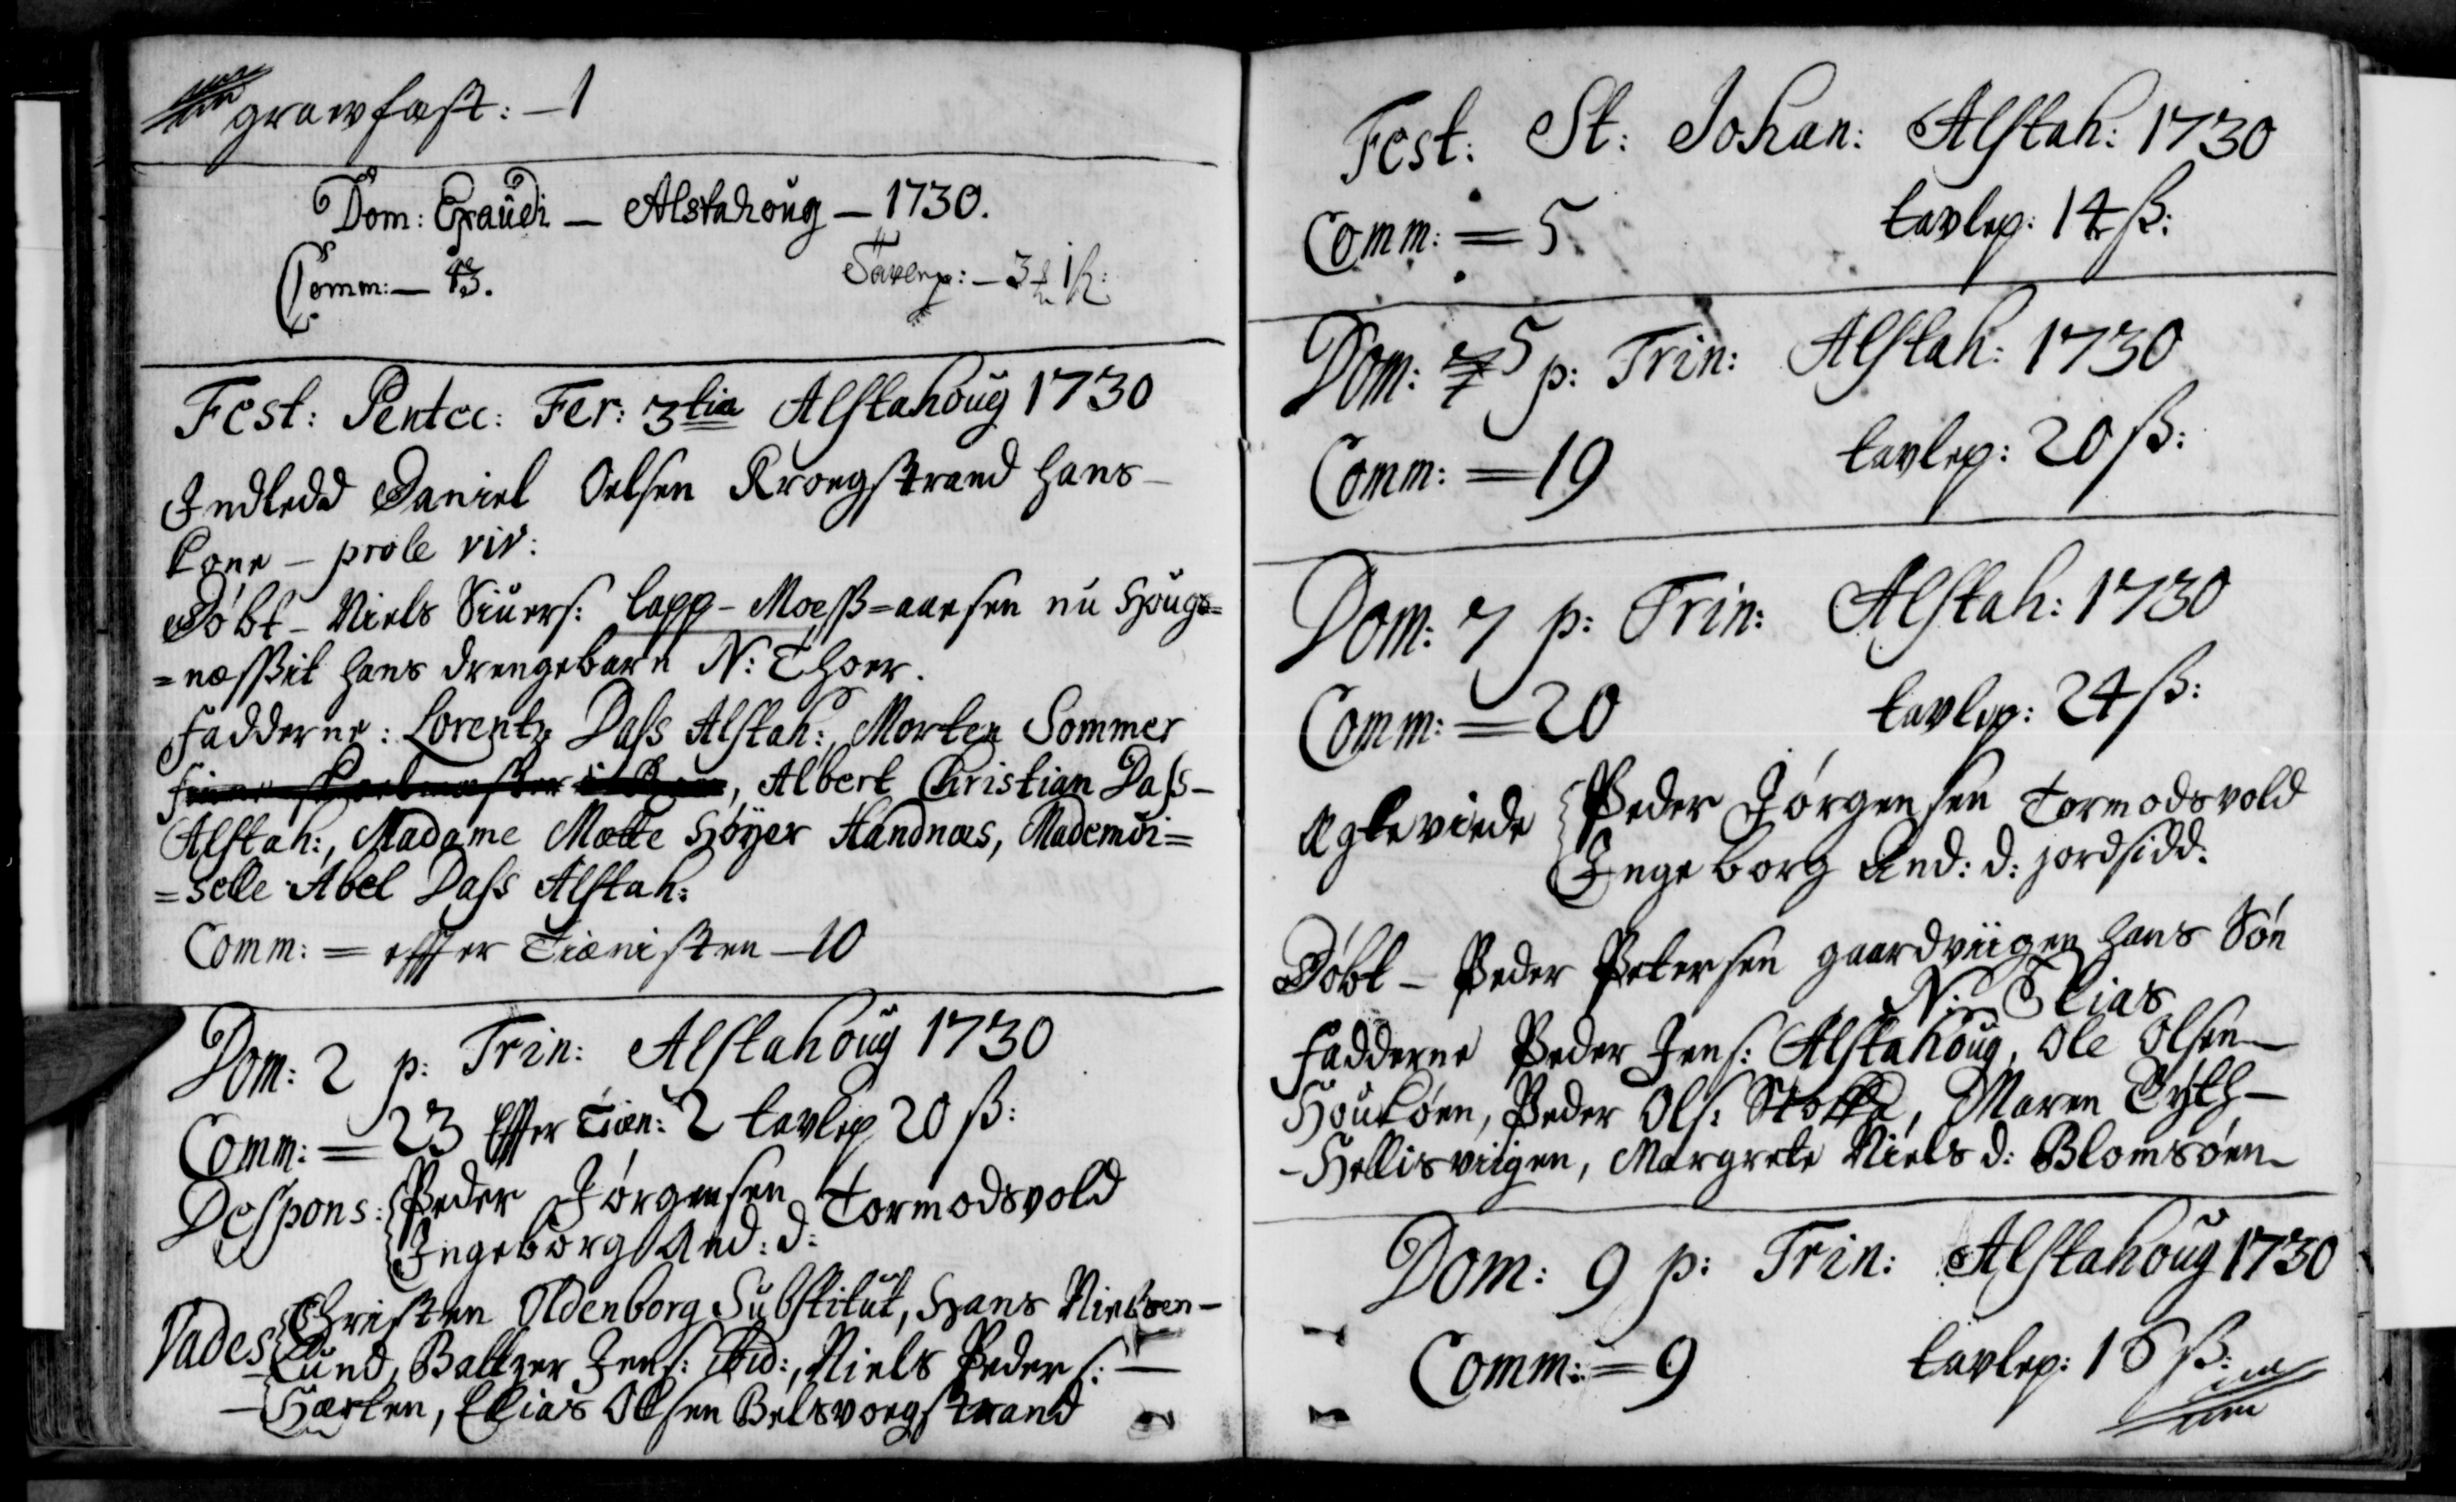 grawfast: – 1
Dom: Exaudi – Alstahoug – 1730.
Comm: – 43.
Tavlep: – 3
Fest: Pentec: Fer: 3tia Alstahoug 1730
Indledd Daniel Oelsen Kroegstrand hans –
Kone – prole viv:
Døbt – Niels Siuers: lapp – Moess=aaesen nu Hougs=
=næssit hans drengebarn N: Thoer.
Fadderne: Lorentz Dass Alstah:, Morten Sommer
, Albert Christian Dass –
Alstah:, Madame Mætte Høyer Handnæs, Mademoi=
=selle Abel Dass Alstah:
Comm: = effter Tiænisten – 10
Dom: 2 p: Trin: Alstahoug 1730
Comm: = 23 Effter Tiæn: 2 tavlep 20 ß:
Despons: Peder Jørgensen Tormodsvold
Ingeborg And: d:
Vades Christen Oldenborg Substitut, Hans Nielsen –
– Lund, Baltzer Jens: ibid:, Niels Peders: –
– Hærten, Elias Olsen Belsvoegstrand
Fest: St: Johan: Alstah: 1730
Comm: = 5. tavlep: 14 ß:
Dom: 5 p: Trin: Alstah: 1730
Comm: = 19 tavlep: 20 ß:
Dom: 7 p: Trin: Alstah: 1730
Comm: = 20 tavlep: 24 ß:
Ægteviede Peder Jørgensen Tormodsvold
Ingeborg And: d: jordsidd:
Døbt – Peder Petersen gaardviigen hans Søn
N: Elias
Fadderne Peder Jens: Alstahoug, Ole Olsen –
Houkøen, Peder Ols: Stokka, Maren Tyth –
– Hellisviigen, Margrete Niels d: Blomsøen –
Dom: 9 p: Trin: Alstahoug 1730
Comm: = 9 tavlep: 16 ß: